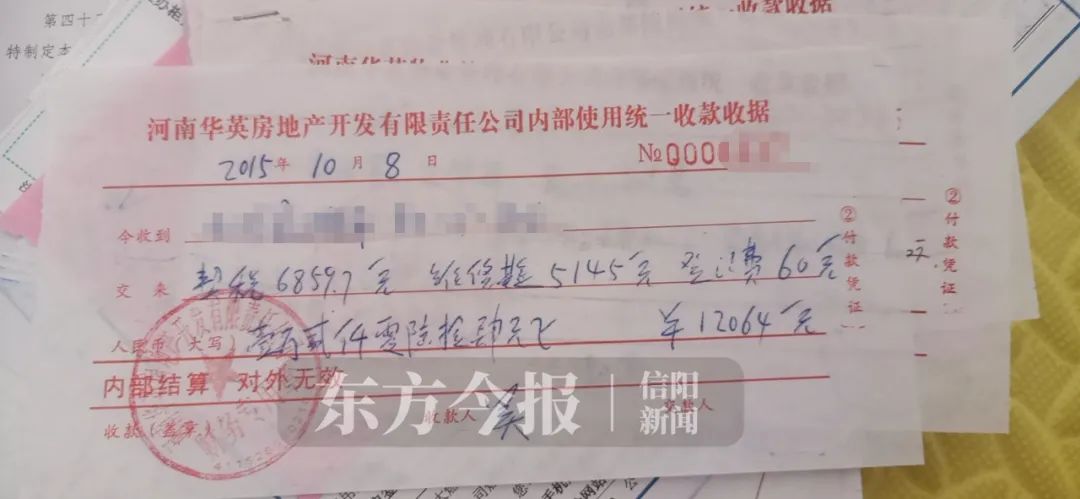 第四十二
特制定本
统一收款收据
河南华英
河南华英房地产开发有限责任公司内部使用统一收款收据
2015年 10月 8日 №000
今收到
交来 契税6859.7元 维修基5145元 登记费60元
人民币(大写) 壹万贰仟零陆拾肆元 ¥12064元
内部结算 对外无效
收款(盖章) 收款人 交款人
②付款凭证
②付款凭证
东方今报 信阳新闻